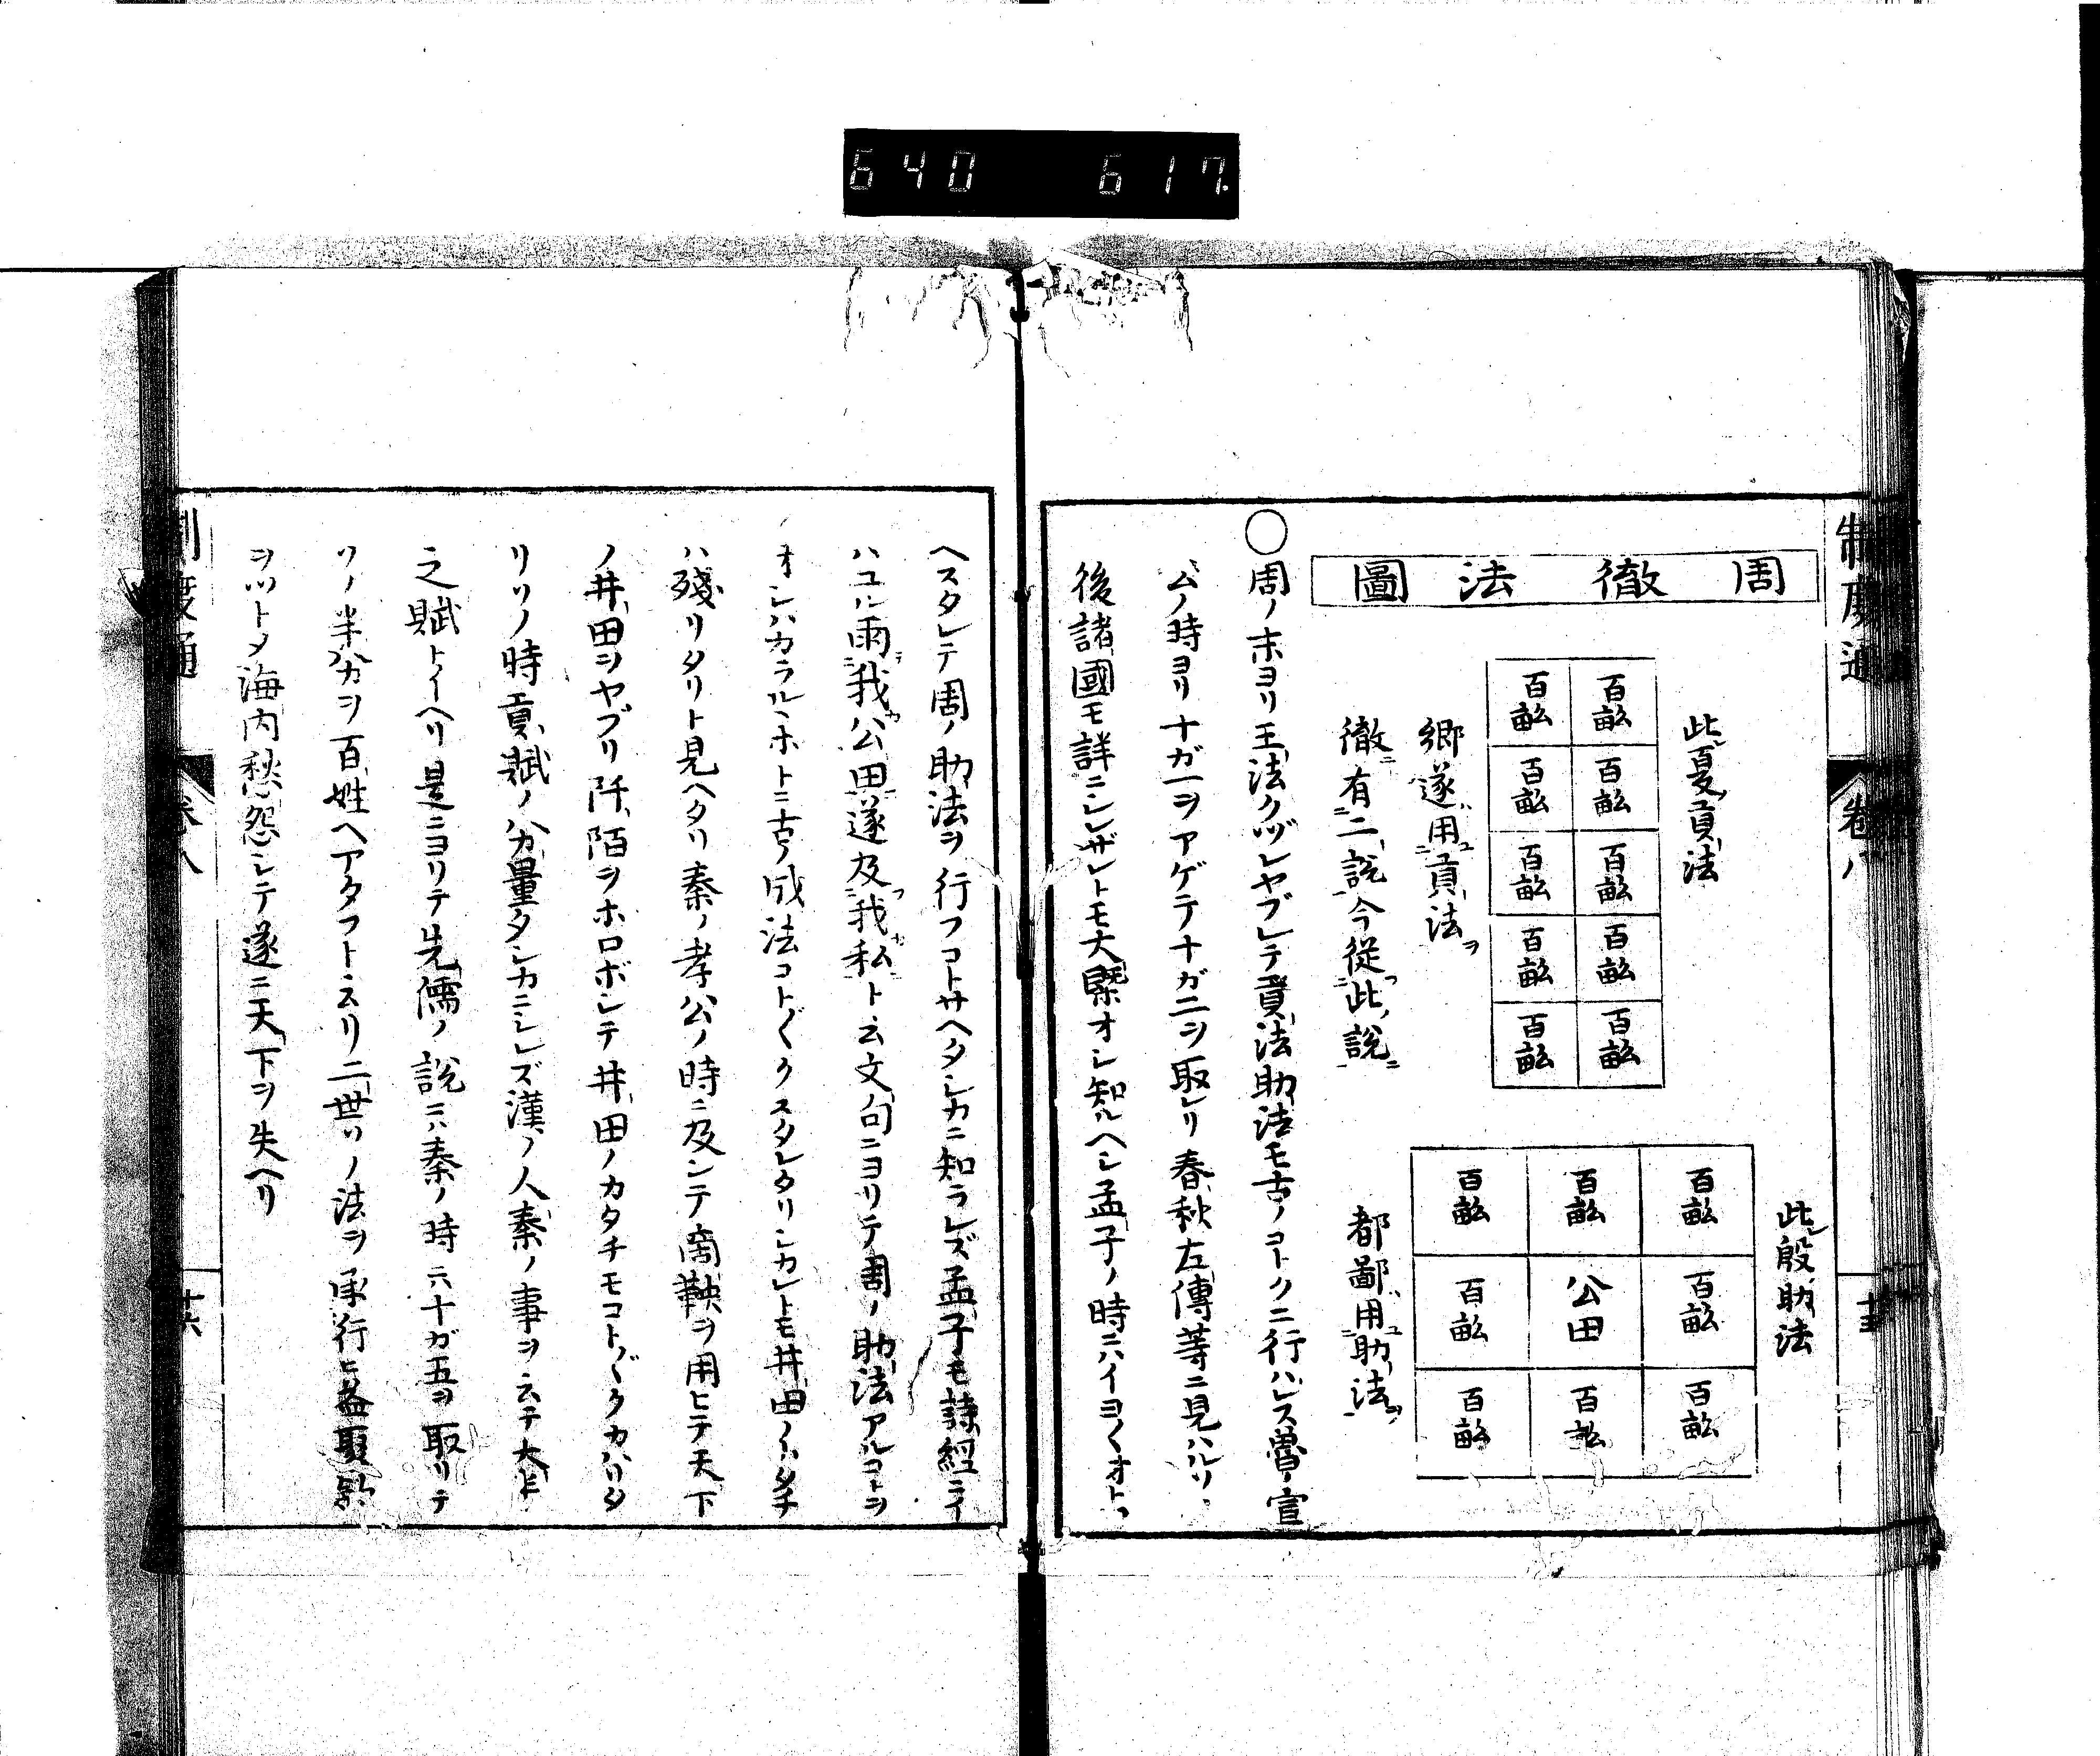 640 617.
制度通 卷八 十五
周徹法圖
此夏貢法
百畝 百畝
百畝 百畝
百畝 百畝
百畝 百畝
百畝 百畝
郷遂用貢法ヲ
徹ニ有二説今從此説ニ
此殷助法
百畝 百畝 百畝
百畝 公田 百畝
百畝 百畝 百畝
都鄙用助法ヲ
〇周ノ末ヨリ王法クヅレヤブレテ貢法助法モ古ノコトクニ行ハレス魯ノ宣
公ノ時ヨリ十ガ一ヲアゲテ十ガ二ヲ取レリ春秋左傳等ニ見ハルリ
後諸國モ詳ニシレザレトモ大槩オシ知ルヘシ孟子ノ時ニハイヨ〱オトロ
ヘスタレテ周ノ助法ヲ行フコトサヘタシカニ知ラレズ孟子モ詩經ニイ
ハユル雨我公田遂及我私ト云文句ニヨリテ周ノ助法アルコトヲ
オシハカラルヽホトニ古ノ成法コト〲クスタレタリシカレトモ井田ノカタチ
ハ殘リタリト見ヘタリ秦ノ孝公ノ時ニ及ンテ商鞅ヲ用ヒテ天下
ノ井田ヲヤブリ阡陌ヲホロボシテ井田ノカタチモコト〲クカハリタ
リソノ時貢賦ノ分量タシカニシレズ漢ノ人秦ノ事ヲ云テ大半
之賦トイヘリ是ニヨリテ先儒ノ説ニハ秦ノ時ニ六十ガ五ヲ取リテ
ソノ半分ヲ百姓ヘアタフト云リ二世ソノ法ヲ承行ヒ益聚斂
ヲツトメ海内愁怨シテ遂ニ天下ヲ失ヘリ
制度通 卷八 十六